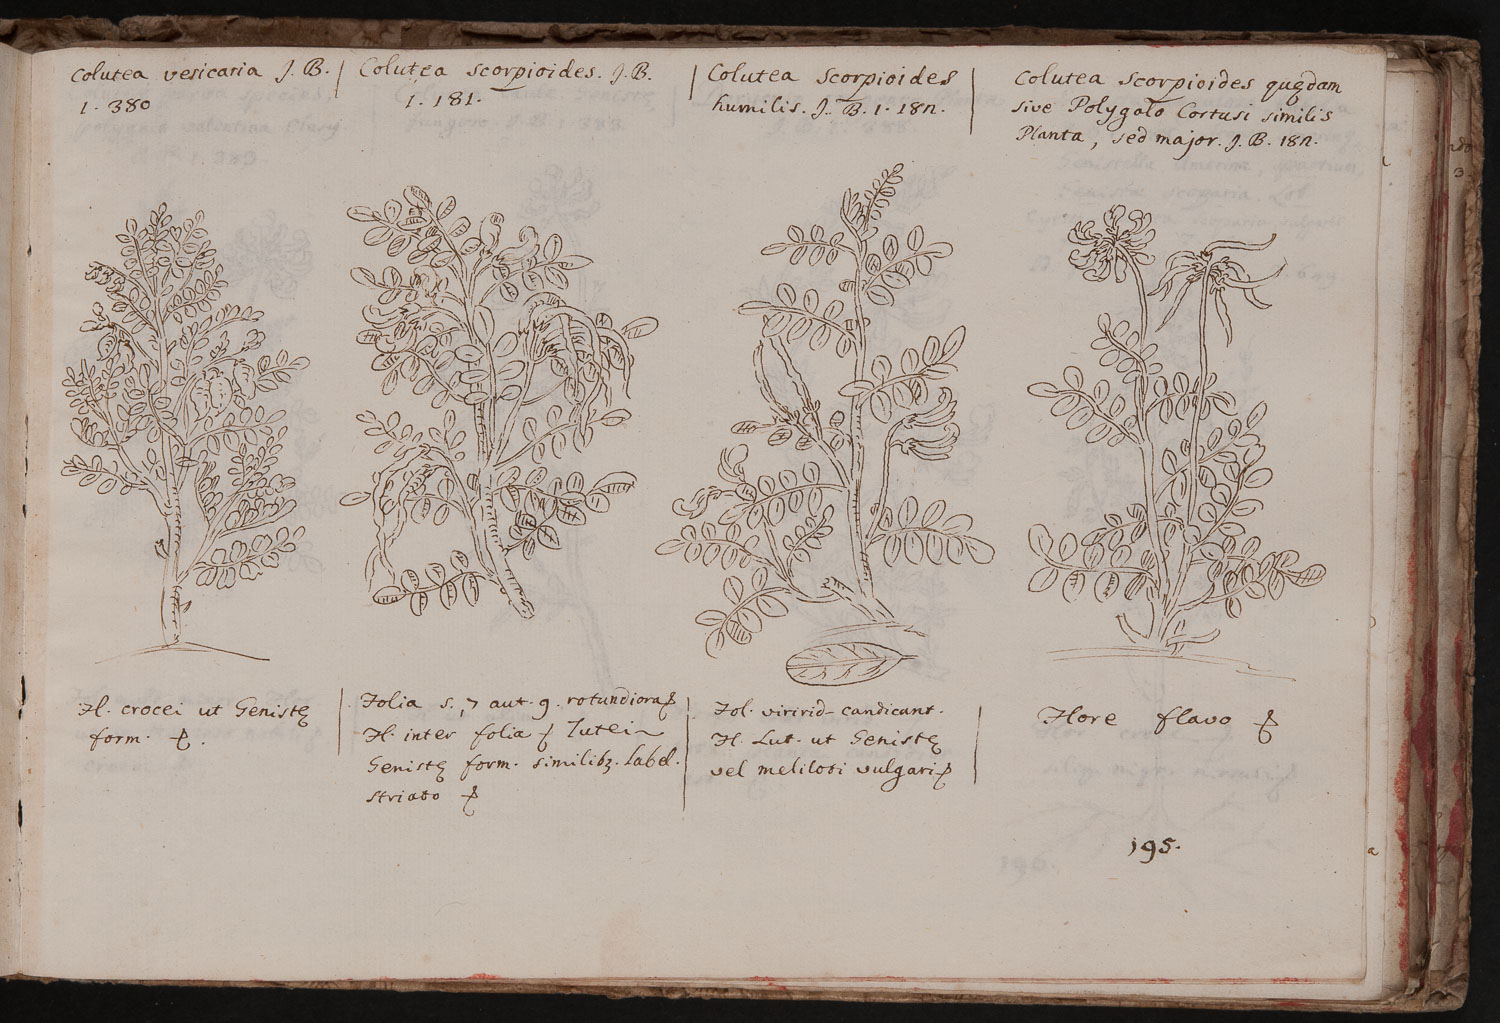 Colutea vesicaria J. B.
1. 380
Colutea scorpioides. J. B.
1. 181.
Colutea scorpioides
humilis. J. B. 1. 18n.
Colutea scorpioides quędam
sive Polygalo Cortusi similis
Planta, sed major. J. B. 18n.
Fl. crocei ut Genistę
form.
Folia 5, 7 aut. 9. rotundiora
Fl. inter folia lutei
Genistę form. similibȝ. Label.
striato
Fol. viririd-candicant.
Fl. Lut. ut Genistę
vel meliloti vulgari
Flore flavo
195.